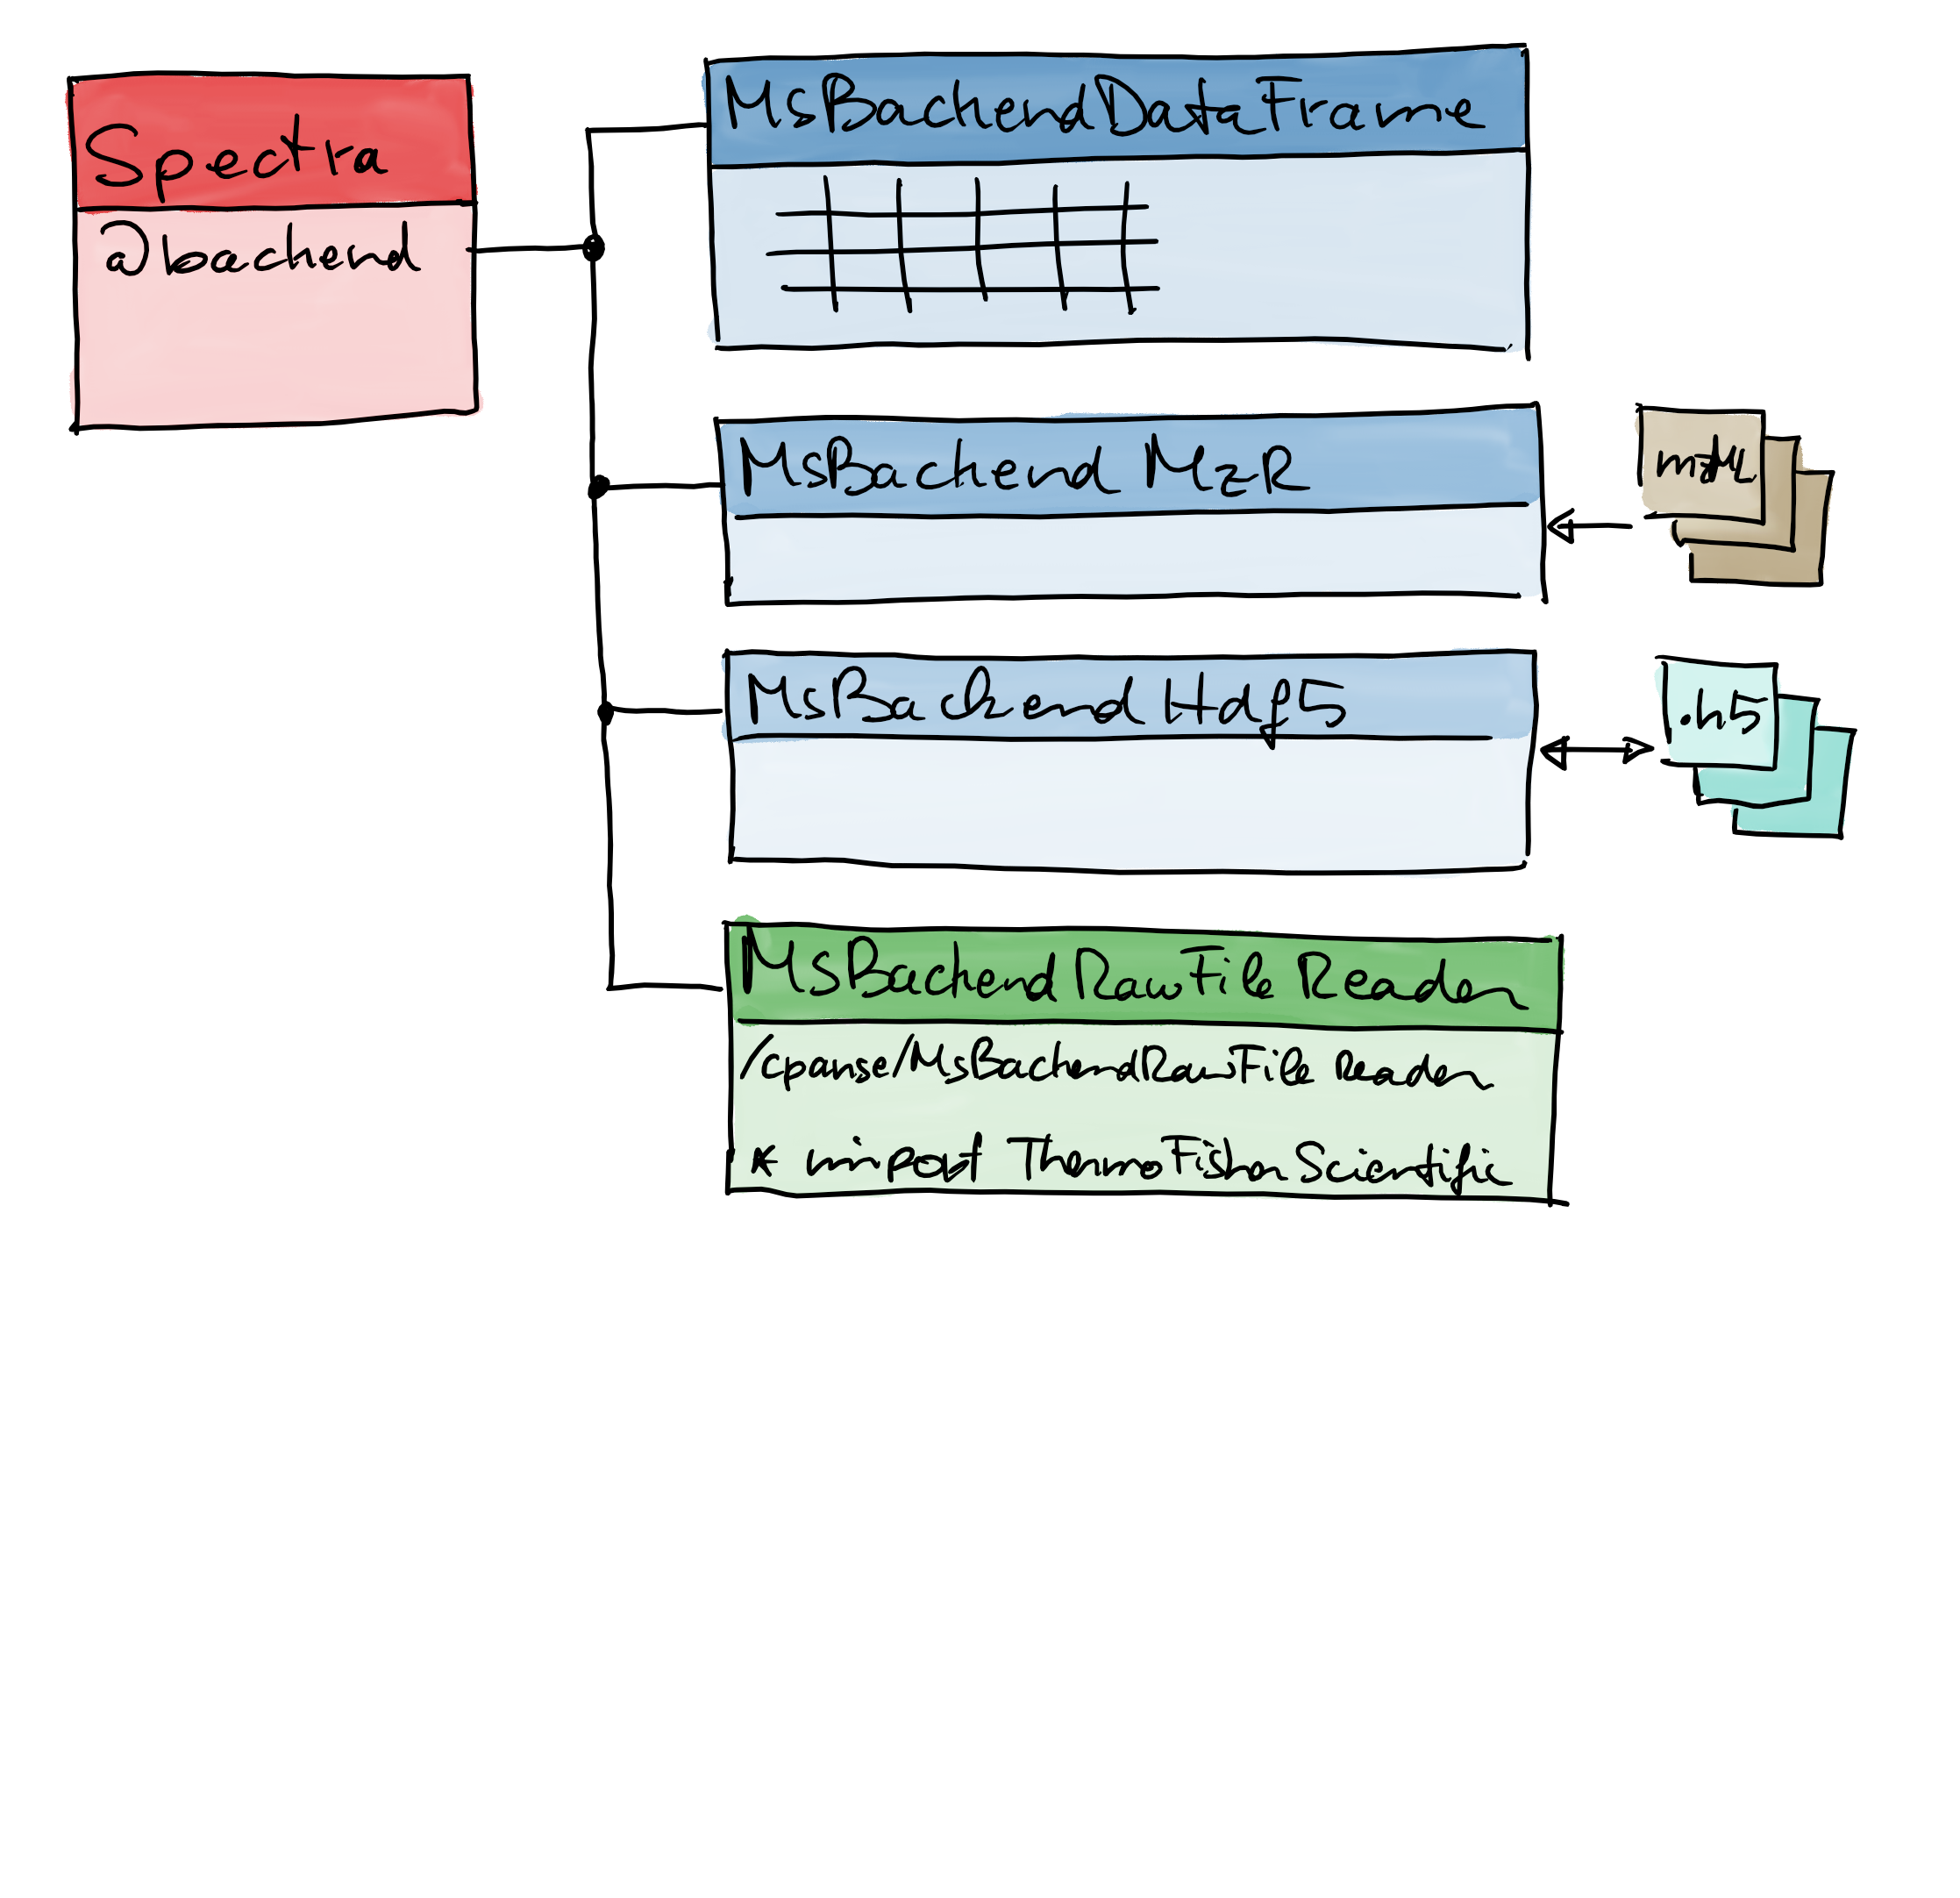 Spectra
@backend
MsBackendDataFrame
MsBackend MzR
mzML
MsBackend Hdf5
.h5
MsBackend RawFileReader
/cpanse/MsBackendRawFileReader
* import ThermoFisherScientific